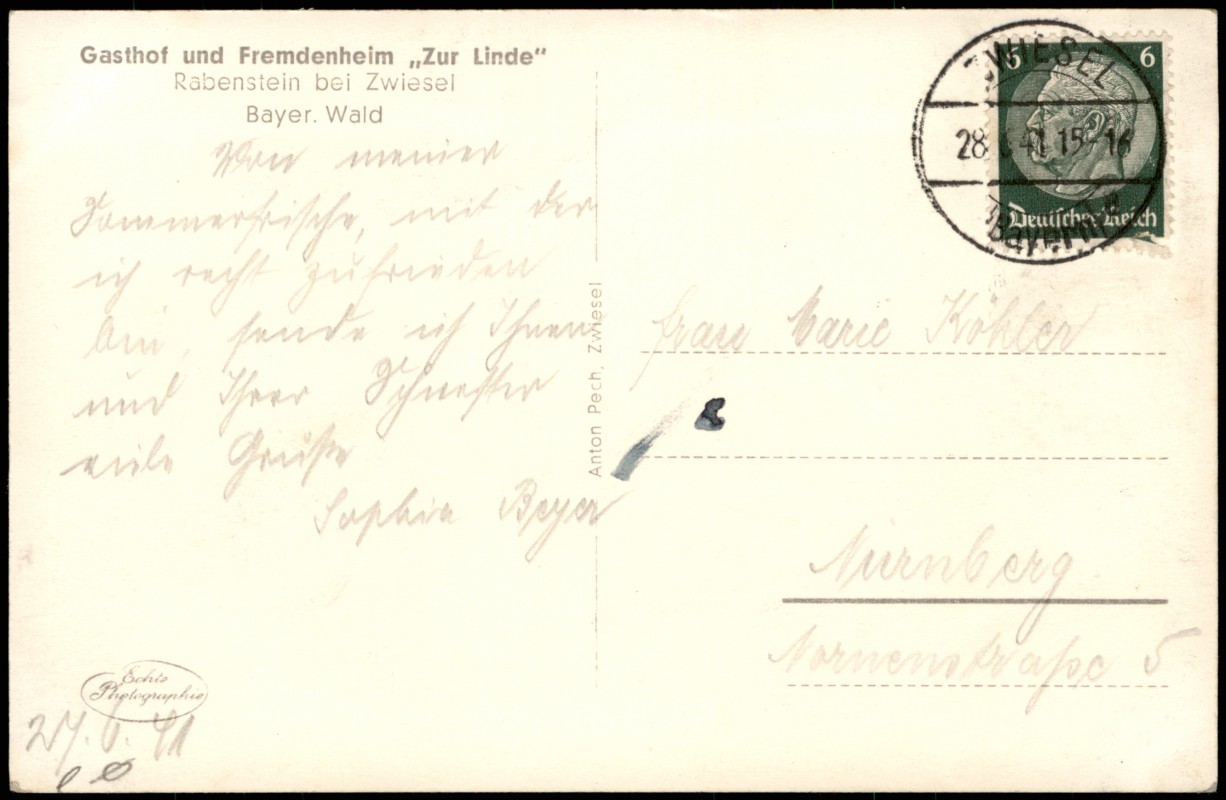 Gasthof und Fremdenheim „Zur Linde“
Rabenstein bei Zwiesel
Bayer. Wald
Von meiner
Sommerfrische, mit der
ich recht zufrieden
bin, sende ich Ihnen
und Ihrer Schwester
viele Grüße
Sophie Beyer
Echte
Photographie
27.6.41
Anton Pech, Zwiesel
6 6
Deutsches Reich
ZWIESEL
28. 6 41 15-16
(Bayern)
Frau Marie Köhler
Nürnberg
Nornenstraße 5